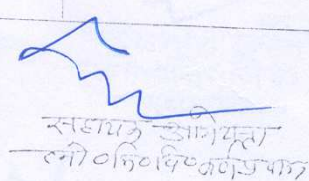 सहायक अभियन्ता
लो०नि०वि० कर्णप्रयाग